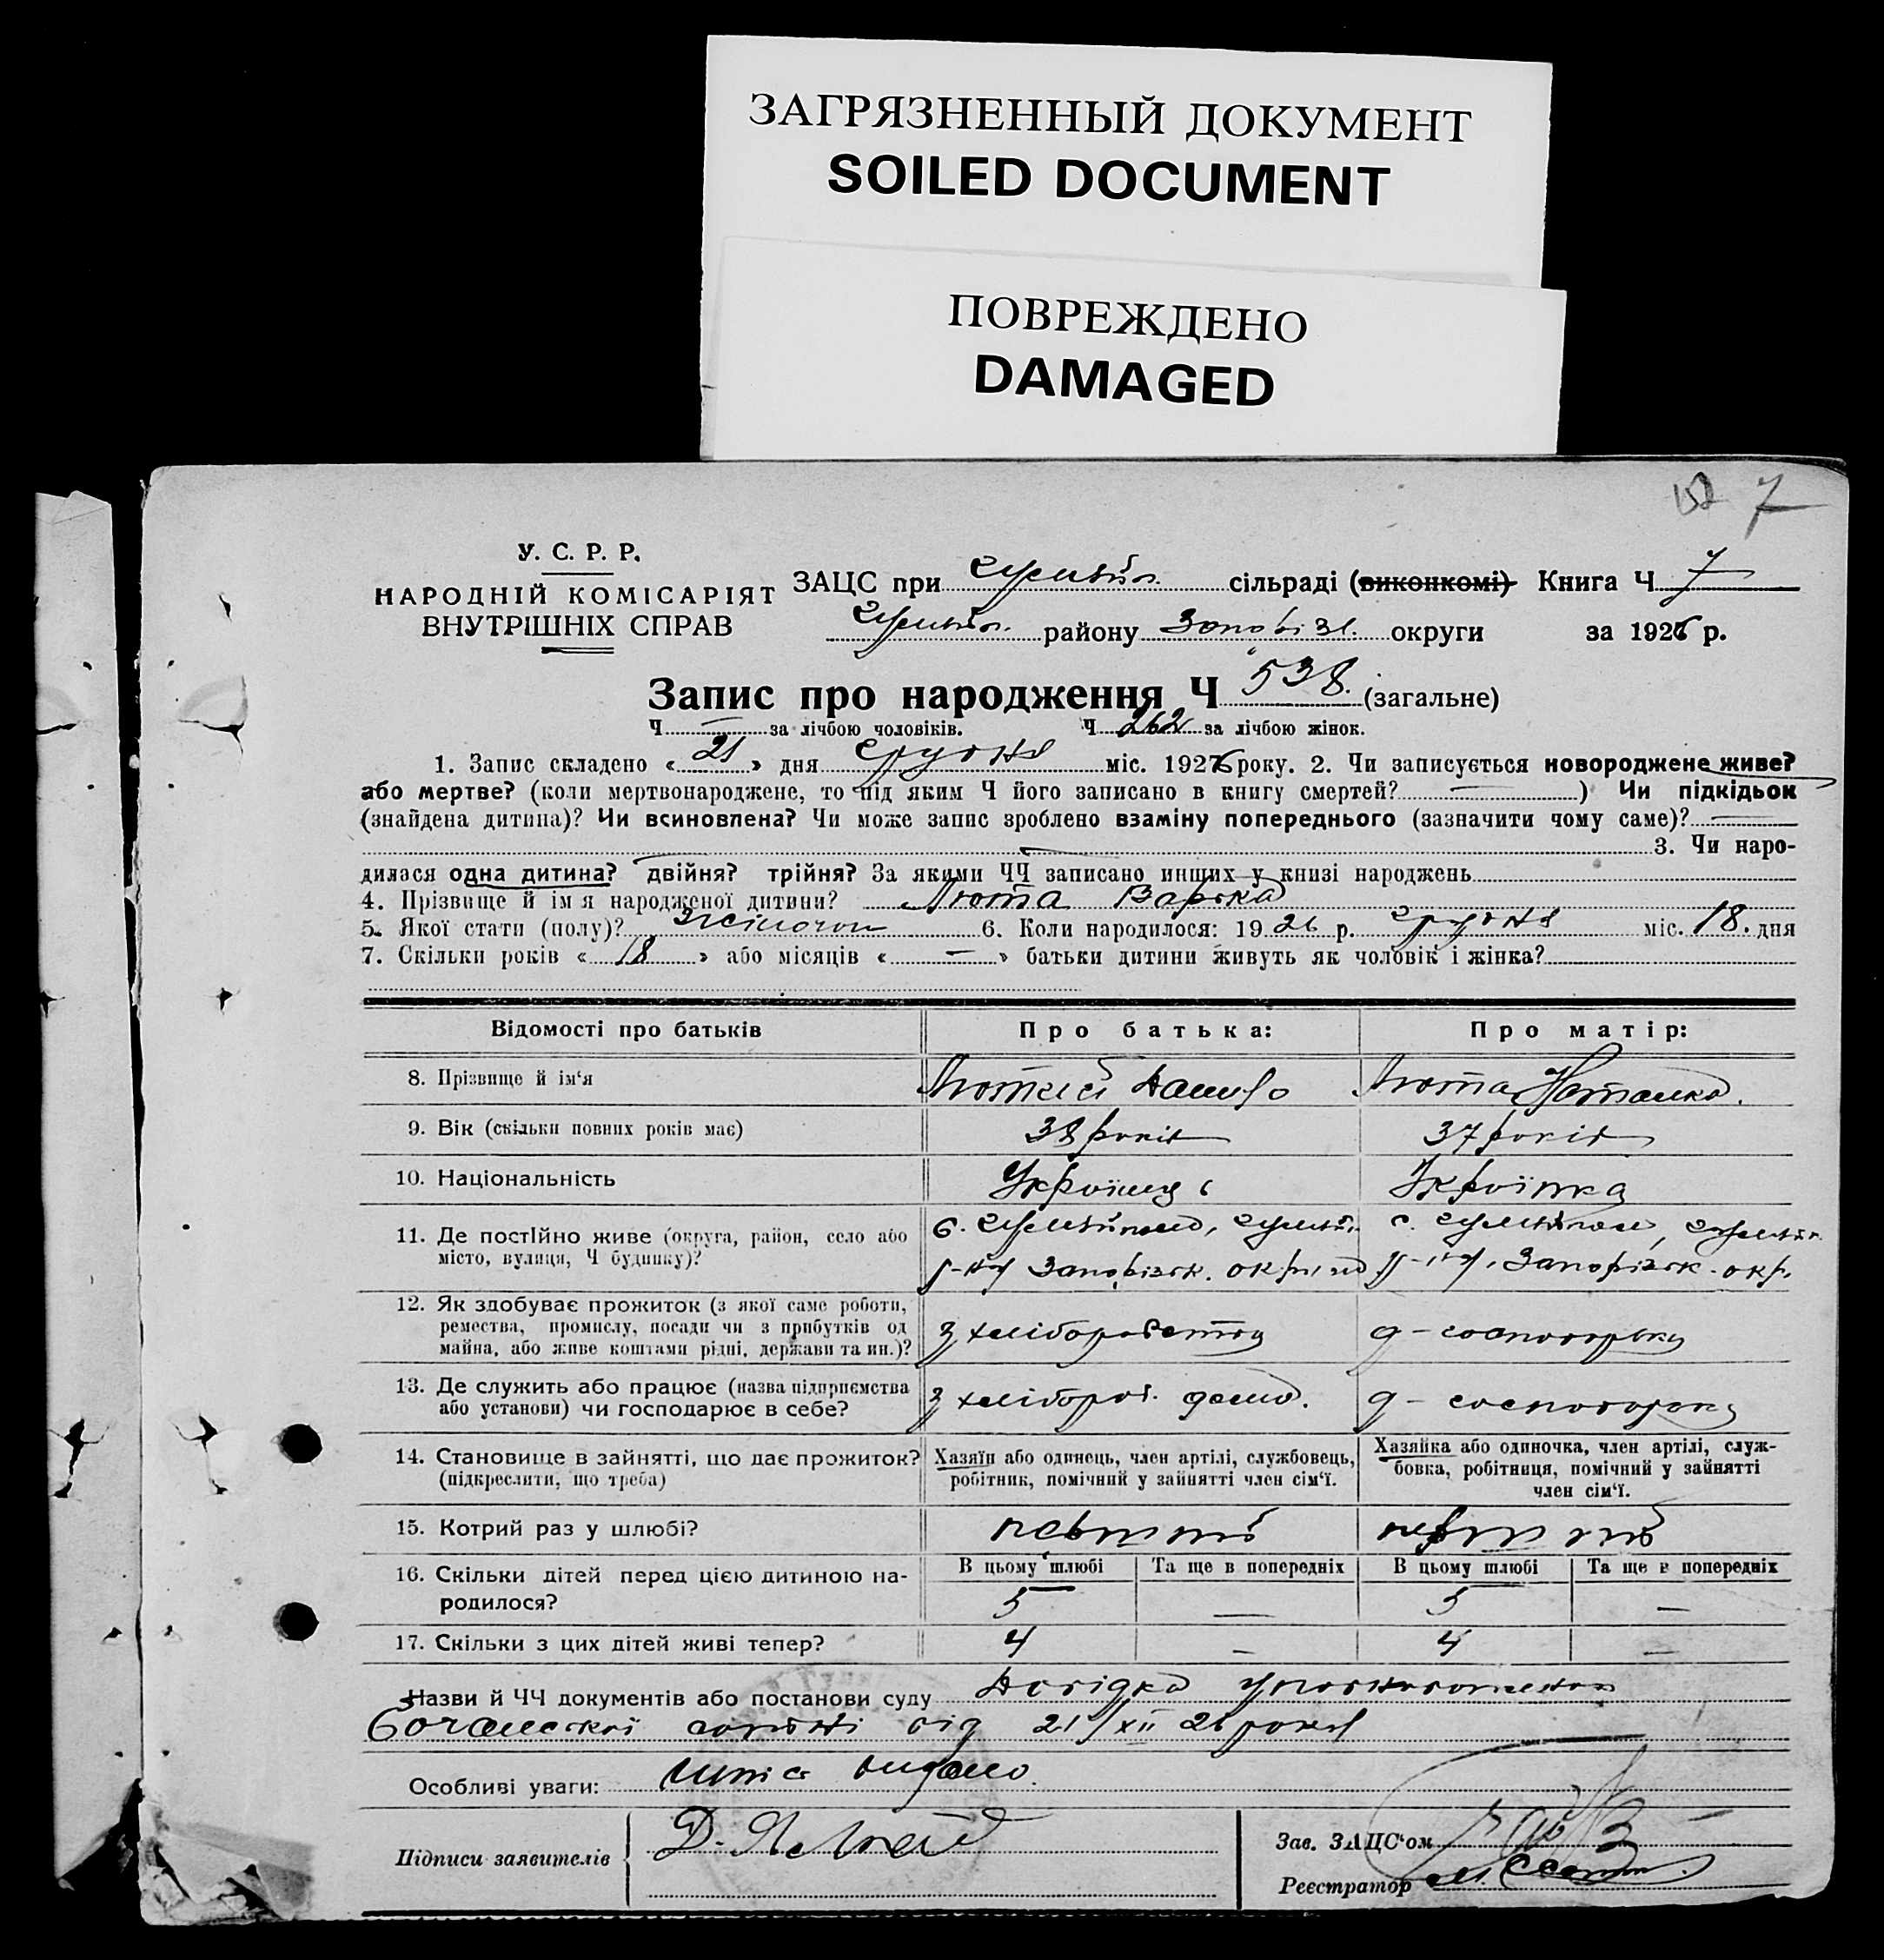 ЗАГРЯЗНЕННЫЙ ДОКУМЕНТ
SOILED DOCUMENT
ПОВРЕЖДЕНО
DAMAGED
7
У. С. Р. Р.
НАРОДНІЙ КОМІСАРІЯТ
ВНУТРІШНІХ СПРАВ
ЗАЦС при сільраді (виконкомі) Книга Ч 7
району Запоріз. округи за 1926 р.
Запис про народження Ч 538. (загальне)
Ч — за лічбою чоловіків. Ч 262 за лічбою жінок.
1. Запис складено « 21 » дня грудня міс. 1926 року. 2. Чи записується новороджене живе?
або мертве? (коли мертвонароджене, то під яким Ч його записано в книгу смертей? — ) Чи підкідьок
(знайдена дитина)? Чи всиновлена? Чи може запис зроблено взаміну попереднього (зазначити чому саме)? —
3. Чи наро-
дилася одна дитина? двійня? трійня? За якими ЧЧ записано инших у книзі народжень
4. Прізвище й ім я народженої дитини? Люта Варька
5. Якої стати (полу)? жіночої 6. Коли народилося: 1926 р. грудня міс. 18. дня
7. Скільки років « 18 » або місяців « — » батьки дитини живуть як чоловік і жінка?
Відомості про батьків Про батька: Про матір:
8. Прізвище й ім‘я Лютий Данило Люта Наталка.
9. Вік (скільки повних років має) 38 років 37 років
10. Національність Українець Українка
11. Де постійно живе (округа, район, село або с. Гуляйполе, Гуляйп. с. Гуляйполе, Гуляйп.
місто, вулиця, Ч будинку)? р-ну Запорізьк. округи р-ну, Запорізьк. окр.
12. Як здобуває прожиток (з якої саме роботи,
ремества, промислу, посади чи з прибутків од з хліборобства д-господарка
майна, або живе коштами рідні, держави та ин.)?
13. Де служить або працює (назва підприємства з хлібороб. дома. д-господарка
або установи) чи господарює в себе?
14. Становище в зайнятті, що дає прожиток? Хазяїн або одинець, член артілі, службовець, Хазяйка або одиночка, член артілі, служ-
(підкреслити, що треба) робітник, помічний у зайнятті член сім‘ї. бовка, робітниця, помічний у зайнятті
член сім‘ї.
15. Котрий раз у шлюбі? перший перший
16. Скільки дітей перед цією дитиною на- В цьому шлюбі Та ще в попередніх В цьому шлюбі Та ще в попередніх
родилося? 5 — 5 —
17. Скільки з цих дітей живі тепер? 4 — 4 —
Назви й ЧЧ документів або постанови суду Довідка уповноваженого
сотні від 21/XII 26 року
Особливі уваги: видано.
Підписи заявителів
Зав. ЗАЦС‘ом
Реєстратор